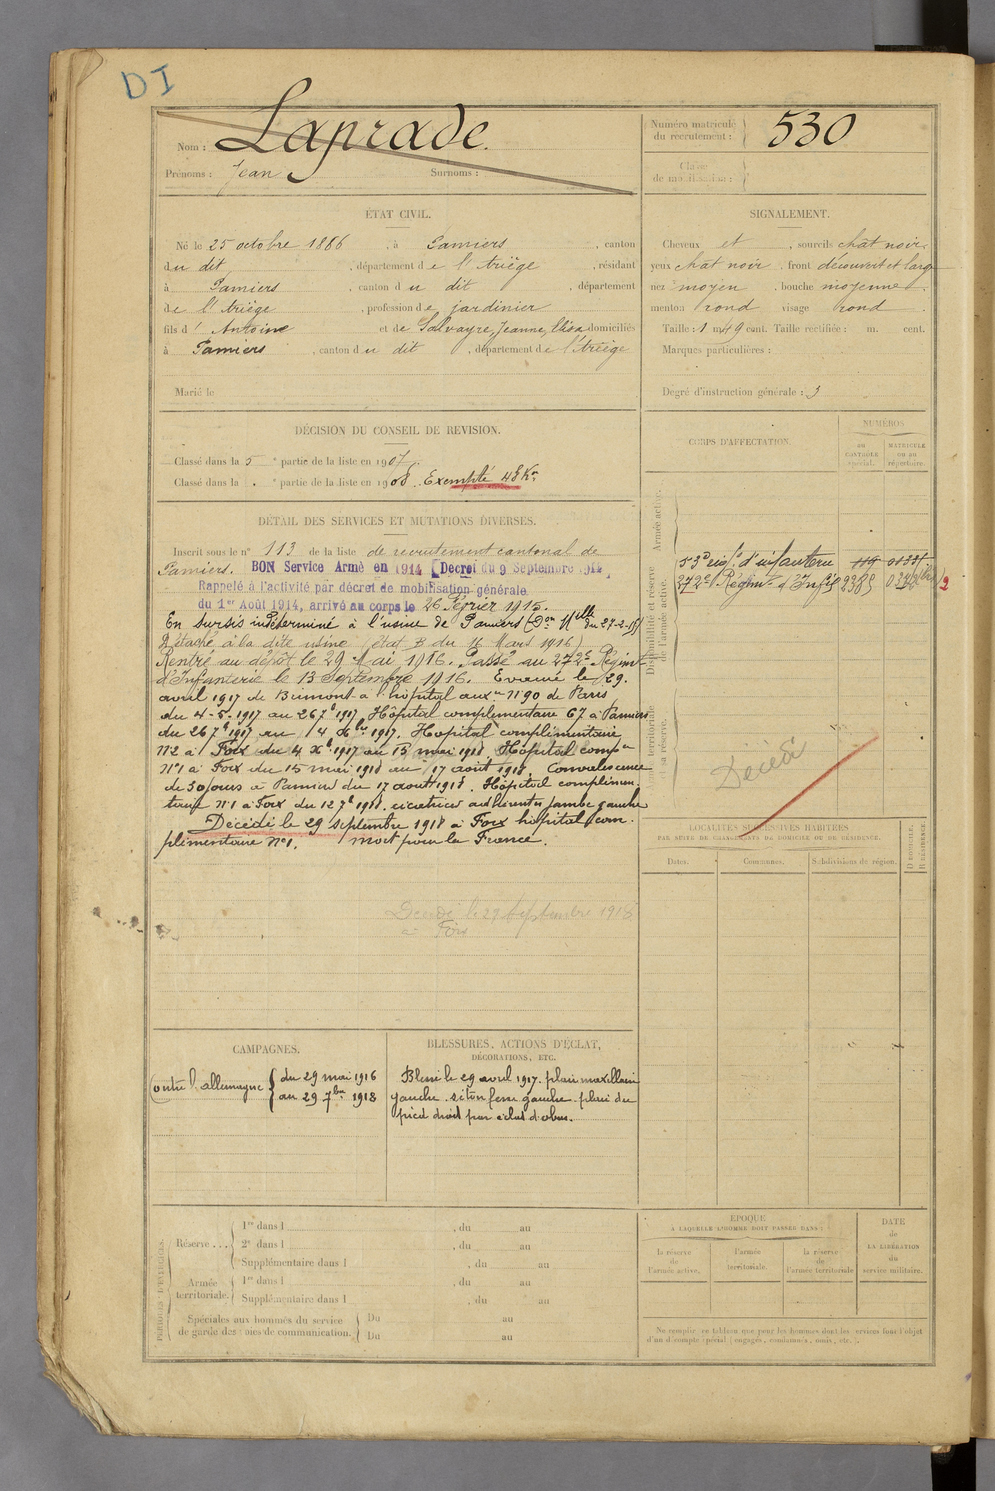 DI
Nom : Laprade.
Prénoms : Jean Surnoms :
Numéro matricule du recrutement : 530
Classe de mobilisation :
ÉTAT CIVIL.
Né le 25 octobre 1886 , à Pamiers , canton
du dit , département de l'Ariège , résidant
à Pamiers , canton du dit , département
de l'Ariège , profession de jardinier
fils d' Antoine et de Salvayre, Jeanne, Elisa domiciliés
à Pamiers , canton du dit , département de l'Ariège
Marié le
SIGNALEMENT.
Cheveux et , sourcils chât noir
yeux chât noir , front découvert et large
nez moyen , bouche moyenne
menton rond visage rond
Taille : 1 m. 49 cent. Taille rectifiée : m. cent.
Marques particulières :
Degré d'instruction générale : 3
DÉCISION DU CONSEIL DE REVISION.
Classé dans la 5e partie de la liste en 1907.
Classé dans la . e partie de la liste en 1908. Exempté 48 Kos
DÉTAIL DES SERVICES ET MUTATIONS DIVERSES.
Inscrit sous le n° 113 de la liste de recrutement cantonal de
Pamiers. BON Service Armé en 1914 (Décret du 9 Septembre 1914
Rappelé à l'activité par décret de mobilisation générale
du 1er Août 1914, arrivé au corps le 26 Février 1915.
En sursis indéterminé à l'usine de Pamiers (Don Mlle du 27-2-15)
Détaché à la dite usine (état B du 16 Mars 1916)
Rentré au dépôt le 29 Mai 1916. Passé au 272e Régiment
d'Infanterie le 13 Septembre 1916. Evacué le 29
avril 1917 de Brimont à l'hôpital auxre N°90 de Paris
du 4-5-1917 au 26 7b 1917 Hôpital complémentaire 67 à Pamiers
du 26 7b 1917 au 4 Xbre 1917. Hopital complémentaire
N°2 à Foix du 4 Xb 1917 au 15 mai 1918 Hôpital compre
N°1 à Foix du 15 mai 1918 au 17 août 1918. Convalescence
de 30 jours à Pamiers du 17 août 1918. Hôpital complémen
taire N°1 à Foix du 12 7b 1918. cicatrice adhérente jambe gauche
Décédé le 29 septembre 1918 à Foix hôpital com.
plémentaire N°1. mort pour la France.
Décédé le 29 septembre 1918
à Foix
CORPS D'AFFECTATION.
NUMÉROS
AU CONTRÔLE spécial.
MATRICULE OU AU répertoire.
Armée active.
Disponibilité et réserve de l'armée active.
53e rég. d'infanterie
272e Régimt d'Infie 2385
Armée territoriale et sa réserve.
Décédé
LOCALITÉS SUCCESSIVES HABITÉES
PAR SUITE DE CHANGEMENTS DE DOMICILE OU DE RÉSIDENCE.
Dates. Communes. Subdivisions de région. D DOMICILE. R RÉSIDENCE.
CAMPAGNES.
Contre l'allemagne { du 29 mai 1916
au 29 7bre 1918
BLESSURES, ACTIONS D'ÉCLAT,
DÉCORATIONS, ETC.
Blessé le 29 avril 1917. plaie maxillaire
gauche. séton fesse gauche. plaie du
pied droit par éclat d'obus.
PÉRIODES D'EXERCICES.
Réserve...
1re dans l , du au
2e dans l , du au
Supplémentaire dans l , du au
Armée territoriale.
1re dans l , du au
Supplémentaire dans l , du au
Spéciales aux hommes du service de garde des voies de communication.
Du au
Du au
ÉPOQUE
À LAQUELLE L'HOMME DOIT PASSER DANS :
la réserve de l'armée active.
l'armée territoriale.
la réserve de l'armée territoriale
DATE de LA LIBÉRATION du service militaire.
Ne remplir ce tableau que pour les hommes dont les services font l'objet
d'un décompte spécial (engagés, condamnés, omis, etc.).